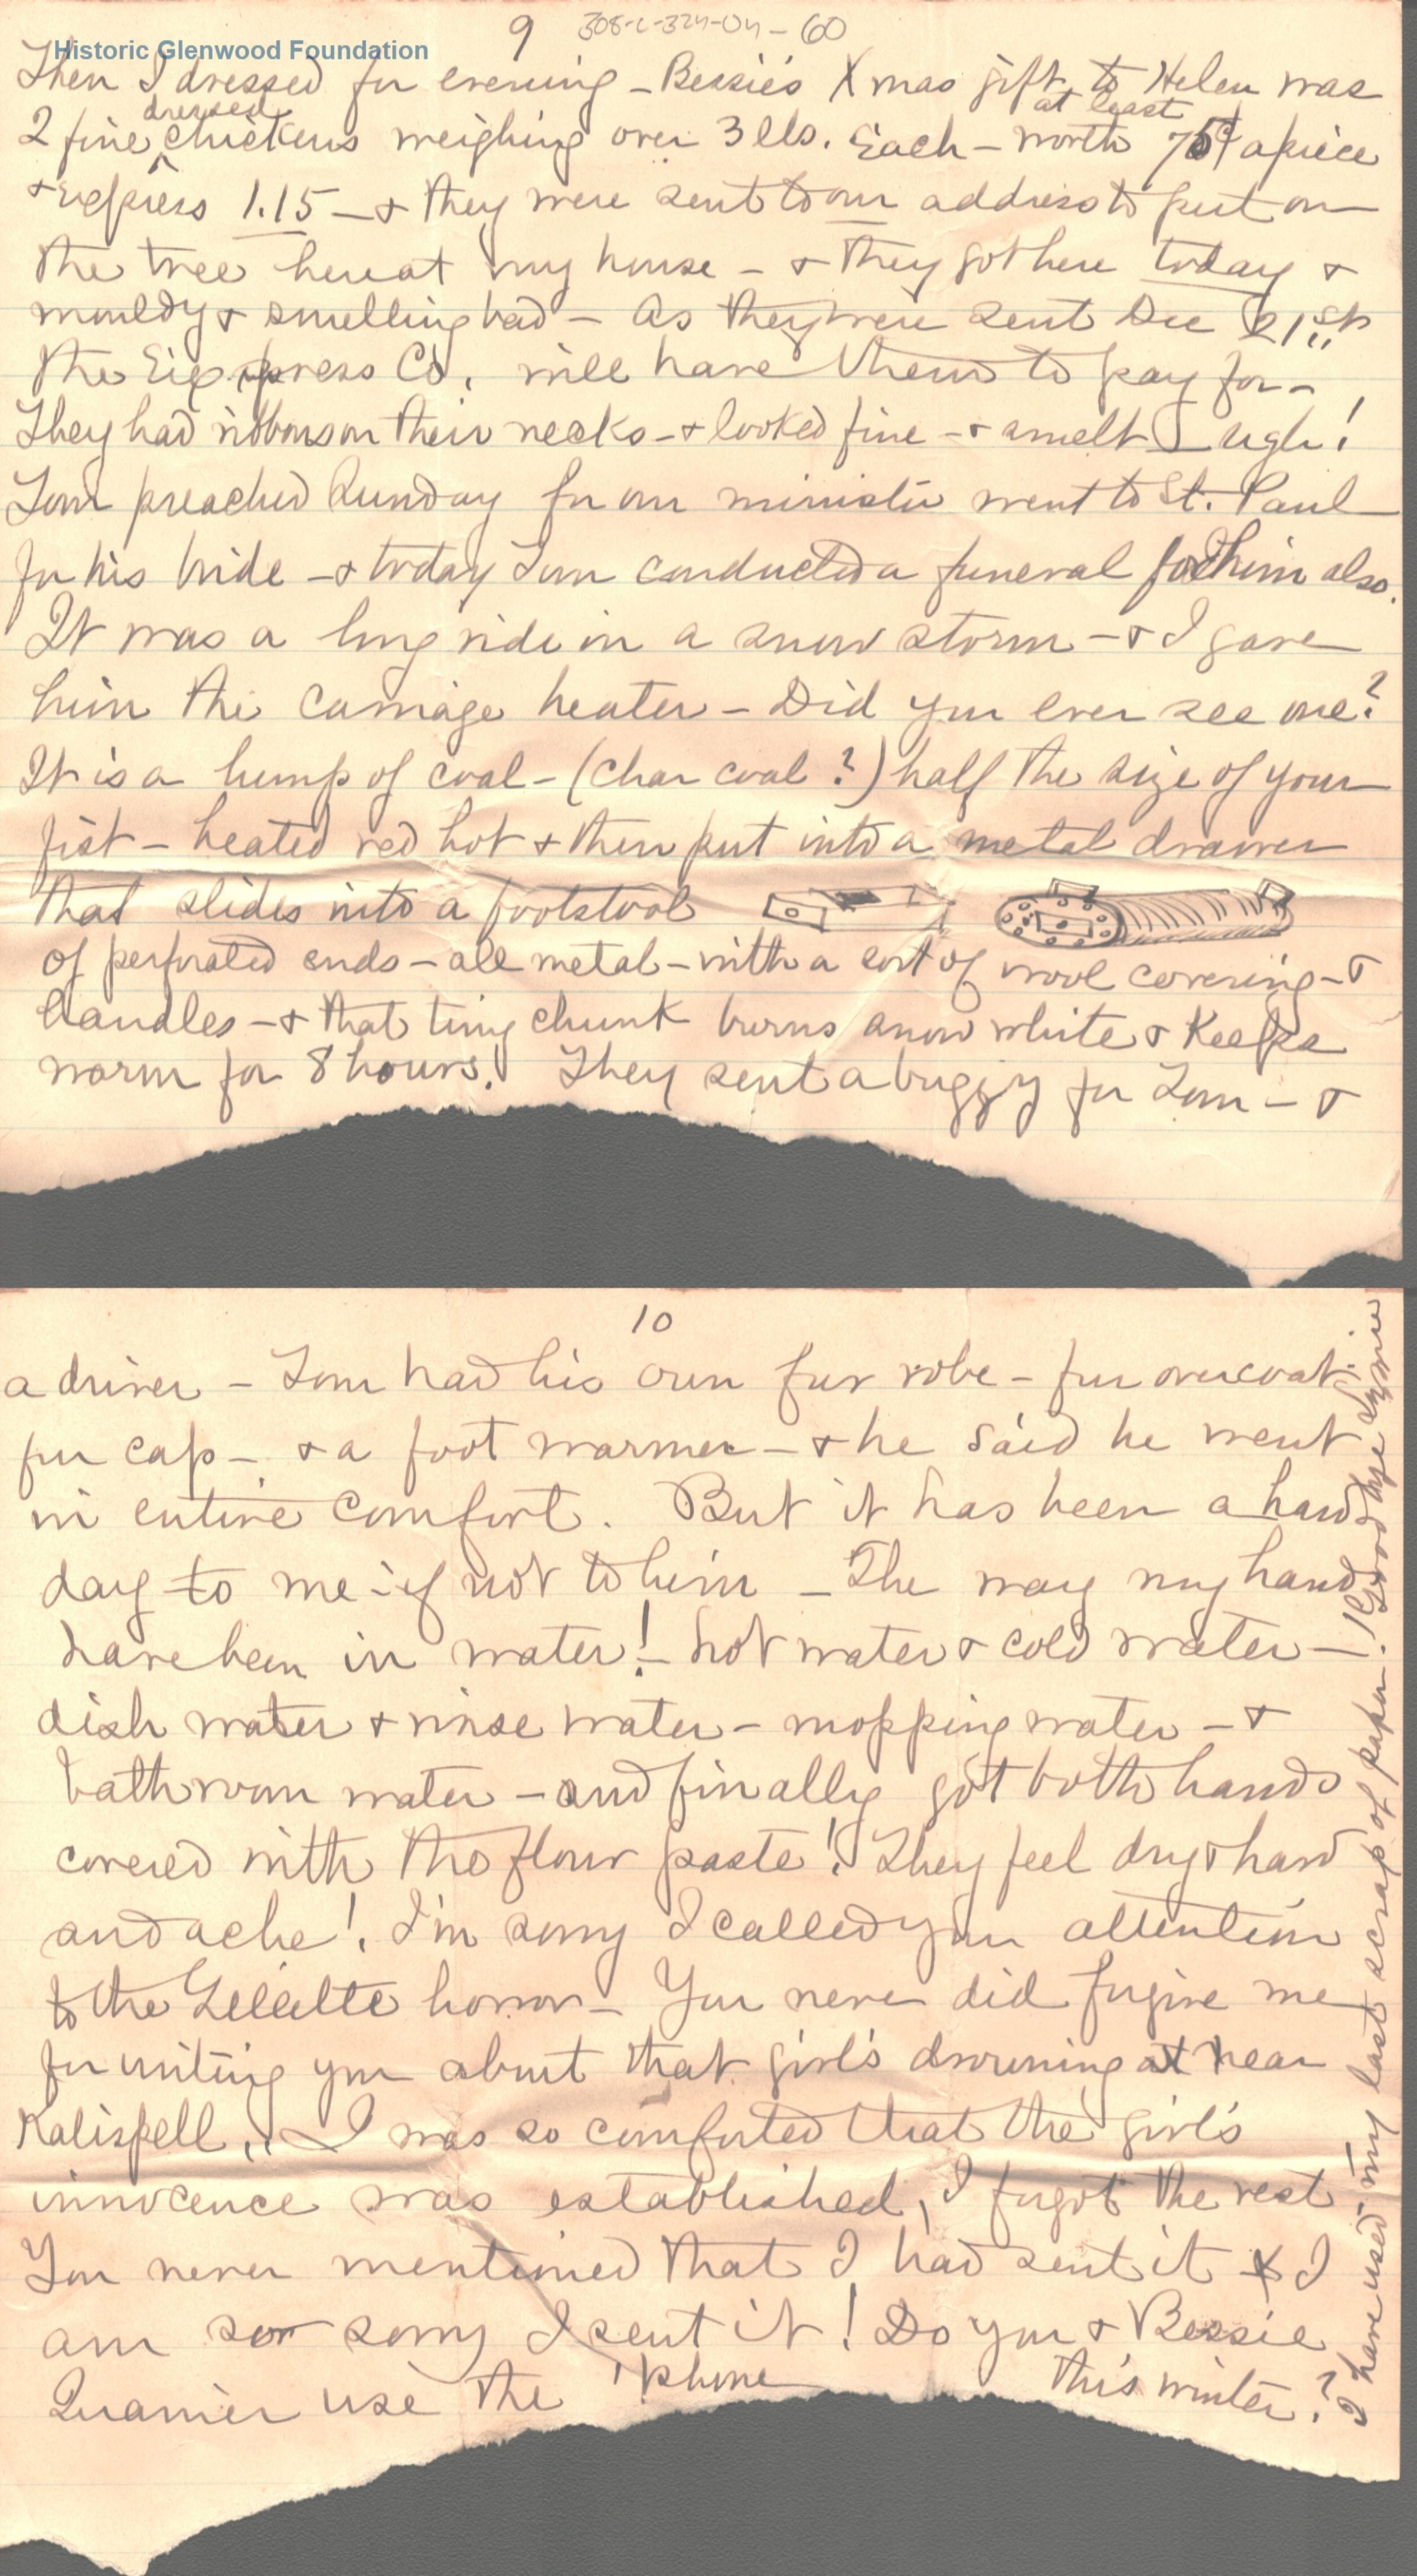 9 308-L-324-04-60
Historic Glenwood Foundation
Then I dressed for evening - Bessie's Xmas gift to Helen was
at least
dressed
2 fine chickens weighing over 3 lbs. Each - worth 75¢ apiece
+ Express 1.15 - & they were sent to our address to put on
the tree here at my house - & they got here today &
mouldy & smelling bad - As they were sent Dec 21st
the Express Co. will have them to pay for -
They had ribbons on their necks - & looked fine - & smelt - ugh!
Tom preached Sunday for our minister went to St. Paul
for his bride - & today Tom conducted a funeral for him also.
It was a long ride in a snow storm - & I gave
him the carriage heater - Did you ever see one?
It is a lump of coal - (char coal?) half the size of your
fist - heated red hot & then put into a metal drawer
that slides into a footstool
of perforated ends - all metal - with a sort of wool covering - &
handles - & that tiny chunk burns snow white & keeps
warm for 8 hours. They sent a buggy for Tom - &
10
a driver - Tom had his own fur robe - fur overcoat -
fur cap - & a foot warmer - & he said he went
in entire comfort. But it has been a hard
day to me - if not to him - The way my hands
have been in water! - hot water & cold water -
dish water & rinse water - mopping water - &
bathroom water - and finally got both hands
covered with the flour paste! They feel dry & hard
and ache! I'm sorry I called your attention
to the horror - You never did forgive me
for writing you about that girl's drowning at near
Kalispell. I was so comforted that the girl's
innocence was established, I forgot the rest
You never mentioned that I had sent it & I
am so sorry I sent it! Do you & Bessie
use the 'phone this winter?
I have used my last scrap of paper! Good bye Lizzie